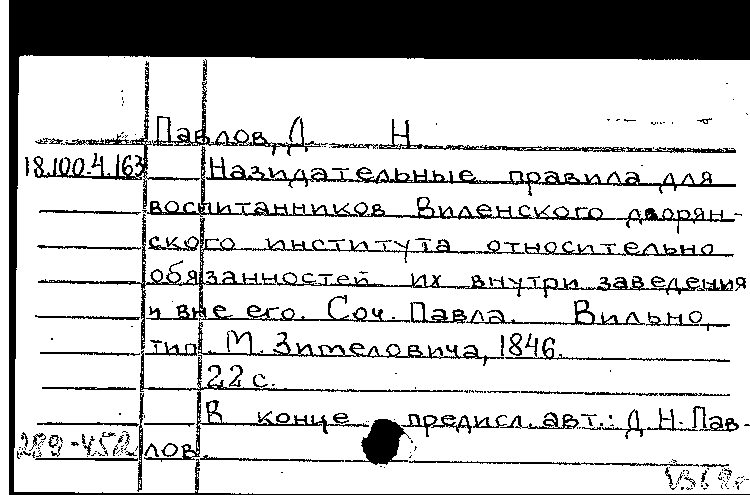 Павлов, Д. Н
18.100.4.163 Назидательные правила для
воспитанников Виленского дворян-
ского института относительно
обязанностей их внутри заведения
и вне его. Соч. Павла. Вильно,
тип. М. Зимеловича, 1846.
22 с.
В конце предисл. авт.: Д Н. Пав-
289-452 лов.